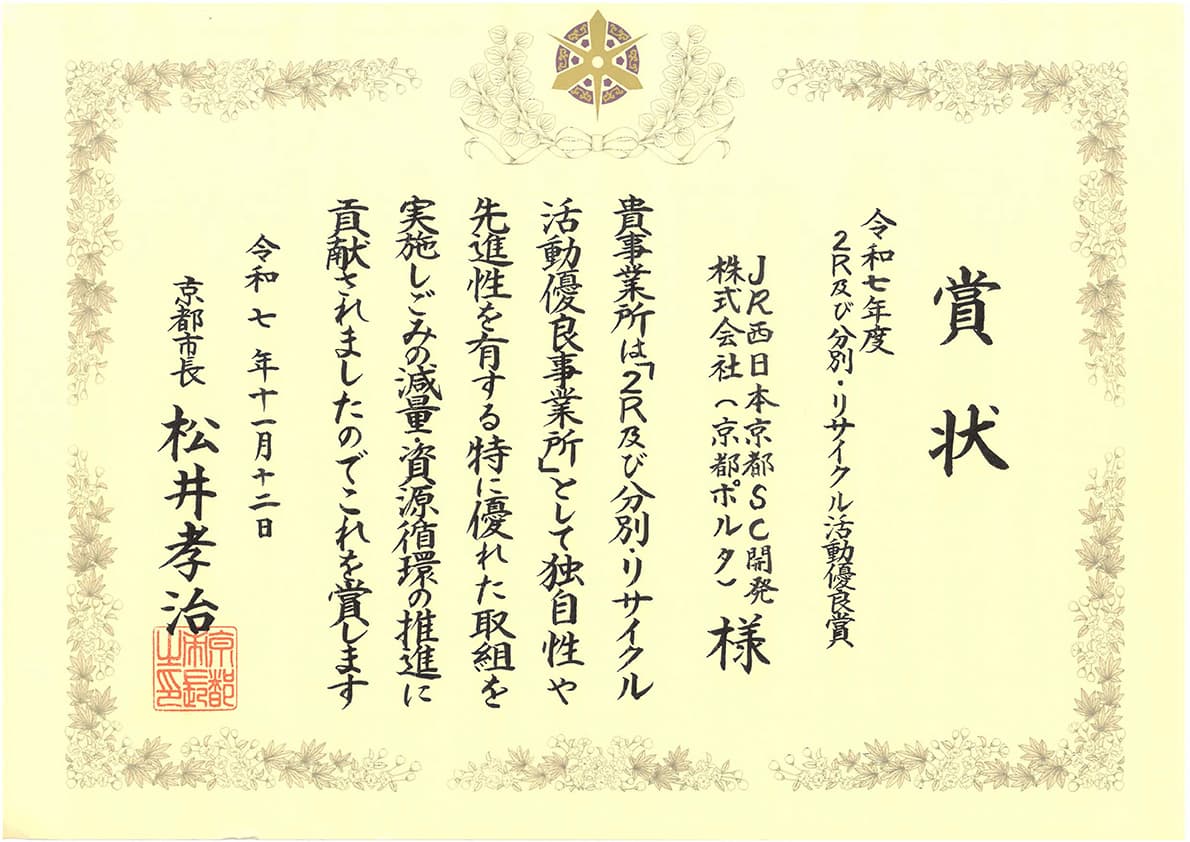 賞状
令和七年度
2R及び分別・リサイクル活動優良賞
JR西日本京都SC開発
株式会社（京都ポルタ）様
貴事業所は「2R及び分別・リサイクル
活動優良事業所」として独自性や
先進性を有する特に優れた取組を
実施しごみの減量・資源循環の推進に
貢献されましたのでこれを賞します
令和七年十一月十二日
京都市長 松井孝治
京都市長之印